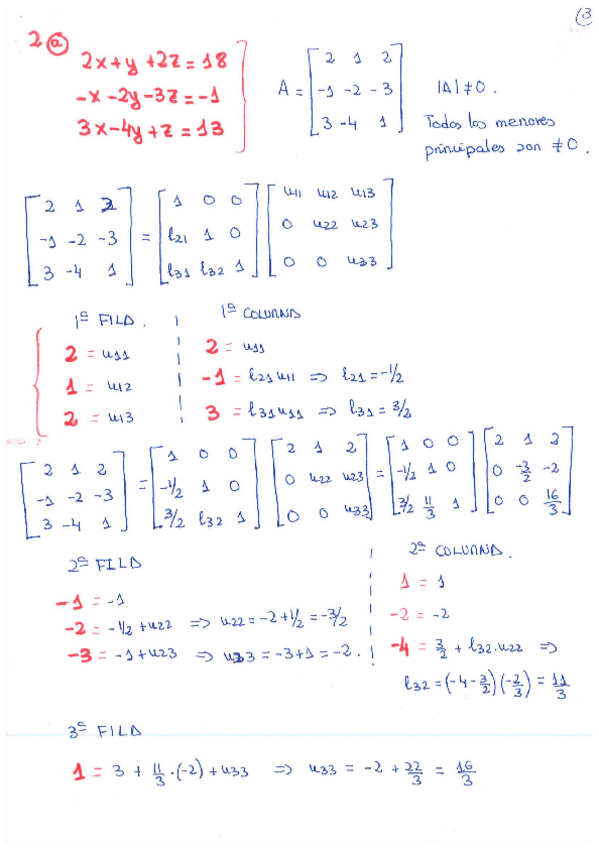 (3
2 a) 2x+y+2z=18
-x-2y-3z=-1
3x-4y+z=13
A = [2 1 2; -1 -2 -3; 3 -4 1]
|A| ≠ 0.
Todos los menores
principales son ≠ 0.
[2 1 2; -1 -2 -3; 3 -4 1] = [1 0 0; l21 1 0; l31 l32 1] [u11 u12 u13; 0 u22 u23; 0 0 u33]
1ª FILA.
2 = u11
1 = u12
2 = u13
1ª COLUMNA
2 = u11
-1 = l21 u11 ⇒ l21 = -1/2
3 = l31 u11 ⇒ l31 = 3/2
[2 1 2; -1 -2 -3; 3 -4 1] = [1 0 0; -1/2 1 0; 3/2 l32 1] [2 1 2; 0 u22 u23; 0 0 u33] = [1 0 0; -1/2 1 0; 3/2 11/3 1] [2 1 2; 0 -3/2 -2; 0 0 16/3]
2ª FILA
-1 = -1
-2 = -1/2 + u22 ⇒ u22 = -2 + 1/2 = -3/2
-3 = -1 + u23 ⇒ u33 = -3 + 1 = -2.
2ª COLUMNA.
1 = 1
-2 = -2
-4 = 3/2 + l32 · u22 ⇒
l32 = (-4 - 3/2)(-2/3) = 11/3
3ª FILA
1 = 3 + 11/3 · (-2) + u33 ⇒ u33 = -2 + 22/3 = 16/3